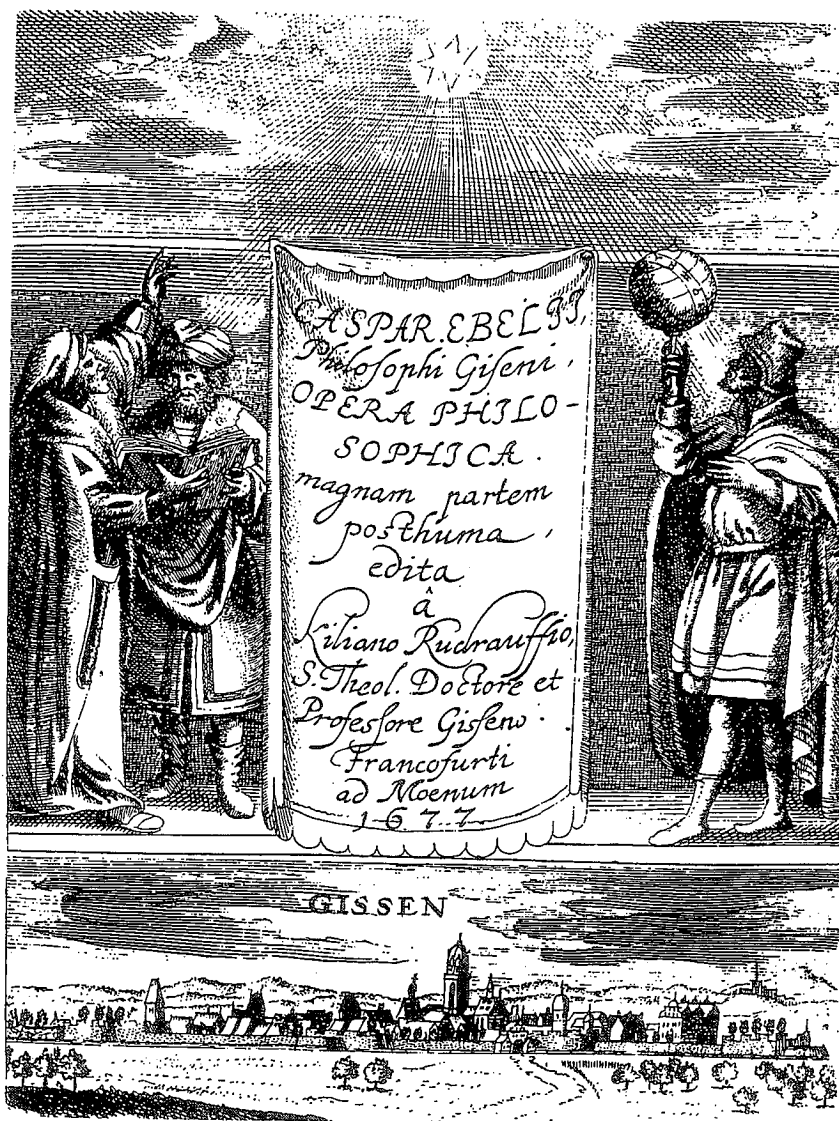 CASPAR. EBELII,
Philosophi Giseni,
OPERA PHILO-
SOPHICA.
magnam partem
posthuma,
edita
â
Kiliano Rudrauffio,
S. Theol. Doctore et
Professore Gisseno.
Francofurti
ad Moenum
1677
GISSEN